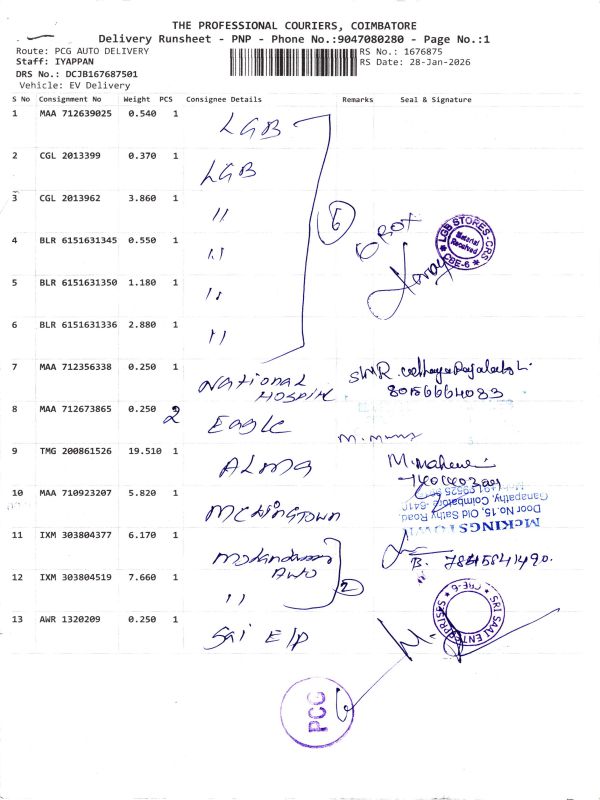 THE PROFESSIONAL COURIERS, COIMBATORE
Delivery Runsheet - PNP - Phone No.:9047080280 - Page No.:1
Route: PCG AUTO DELIVERY
RS No.: 1676875
Staff: IYAPPAN
RS Date: 28-Jan-2026
DRS No.: DCJB167687501
Vehicle: EV Delivery
S No Consignment No Weight PCS Consignee Details Remarks Seal & Signature
1 MAA 712639025 0.540 1 LGB
2 CGL 2013399 0.370 1 LGB
3 CGL 2013962 3.860 1 "
6 BOX
LGB STORES-CRS
Material Received
CBE-6
4 BLR 6151631345 0.550 1 "
5 BLR 6151631350 1.180 1 "
6 BLR 6151631336 2.880 1 "
7 MAA 712356338 0.250 1 National
Hospital
8 MAA 712673865 0.250 2 Eagle
9 TMG 200861526 19.510 1 ALMA
10 MAA 710923207 5.820 1 MCKINGTOWN
McKINGSTOWN
Door No.15, Old Sathy Road,
Ganapathy, Coimbatore
11 IXM 303804377 6.170 1
12 IXM 303804519 7.660 1 "
2
13 AWR 1320209 0.250 1 Sai E/P
SRI SAAI ENTERPRISES
CBE-6
PCC